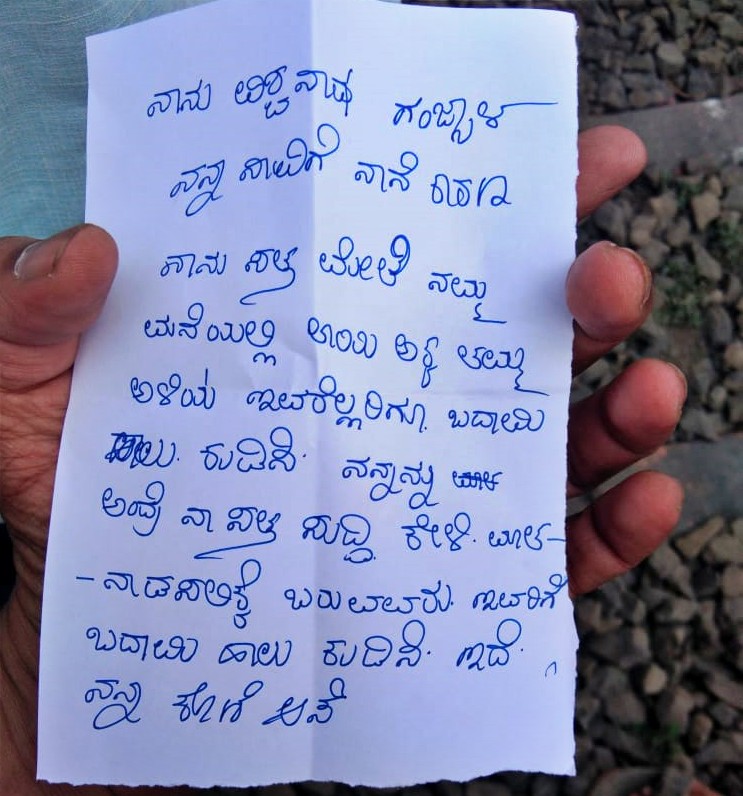 ನಾನು ವಿಶ್ವನಾಥ ಗಂಜ್ಯಾಳ
ನನ್ನ ಸಾವಿಗೆ ನಾನೆ ಕಾರಣ
ನಾನು ಸತ್ತ ಮೇಲೆ ನಮ್ಮ
ಮನೆಯಲ್ಲಿ ತಾಯಿ ಅಕ್ಕ ತಮ್ಮ
ಅಳಿಯ ಇವರೆಲ್ಲರಿಗೂ ಬದಾಮಿ
ಹಾಲು. ಕುಡಿಸಿ. ನನ್ನನ್ನು
ಅಂದ್ರೆ ನಾ ಸತ್ತ ಸುದ್ದಿ ಕೇಳಿ. ಮಾತ-
-ನಾಡಸಲಿಕ್ಕೆ ಬರುವವರು. ಇವರಿಗೆ
ಬದಾಮಿ ಹಾಲು ಕುಡಿಸಿ. ಇದೆ.
ನನ್ನ ಕೊನೆ ಆಸೆ